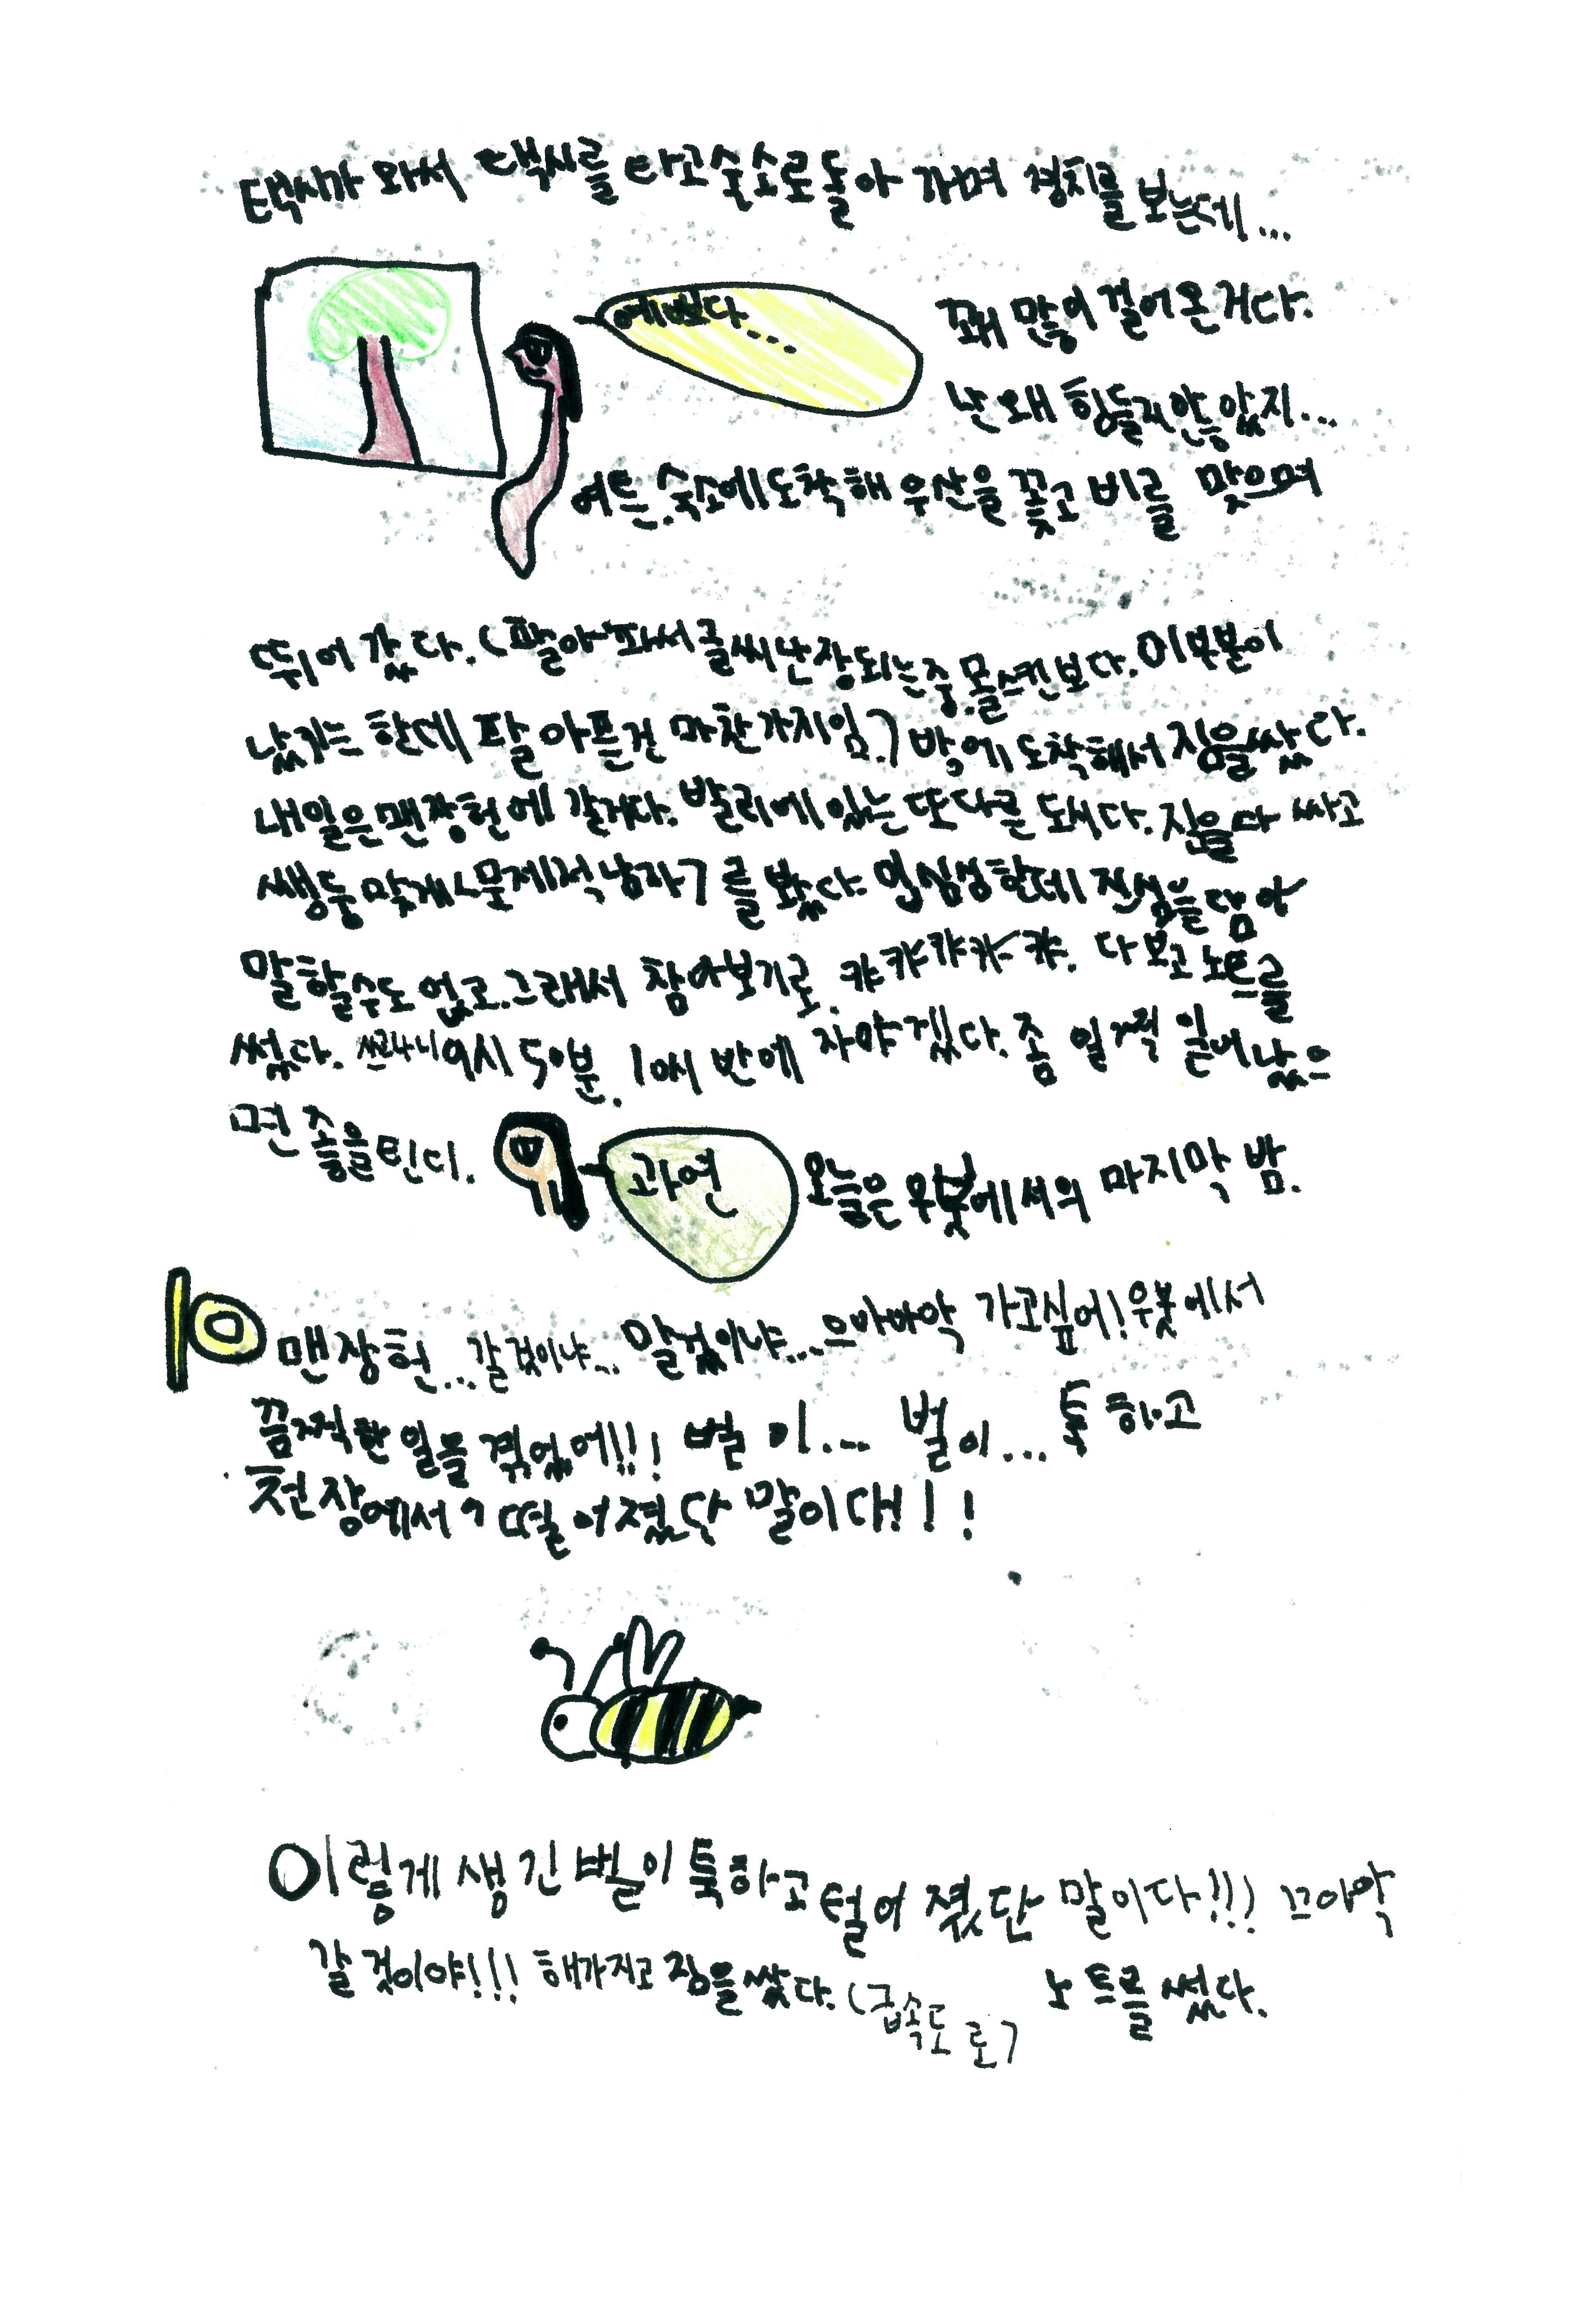 택시가 와서 택시를 타고 숙소로 돌아 가며 경치를 보는데...
예쁘다....
꽤 많이 걸어 온 거다.
난 왜 힘들지 않았지...
여튼, 숙소에 도착해 우산을 꽂고 비를 맞으며
뛰어 갔다. (팔 아파서 글씨 난장되는 중. 몰스킨보다. 이 부분이
났기는 한데 팔 아픈건 마찬가지임.) 방에 도착해서 짐을 쌌다.
내일은 맨장헌에 갈거다. 발리에 있는 또다른 도시다. 짐을 다 싸고
쌩뚱 맞게 <문제적 남자>를 봤다. 업심성한데 진심을 담아
말할 수도 없고. 그래서 참아보기로. 캬캬캬캬캬. 다 보고 노트를
썼다. 쓰고나니 9시 50분. 10시 반에 자야겠다. 좀 일찍 일어났으
면 좋을틴디.
과연
오늘은 우붓에서의 마지막 밤.
맨장헌...갈것이냐... 말것이냐...으아아악 가고싶어! 우붓에서
끔찍한 일을 겪었어!!! 벌이... 벌이... 툭 하고
천장에서 떨어졌단 말이다!!!
이렇게 생긴 벌이 툭하고 털어졌단 말이다!!! 끄아악
갈 것이야!!! 해가지고 짐을 쌌다. (급속도로) 노트를 썼다.